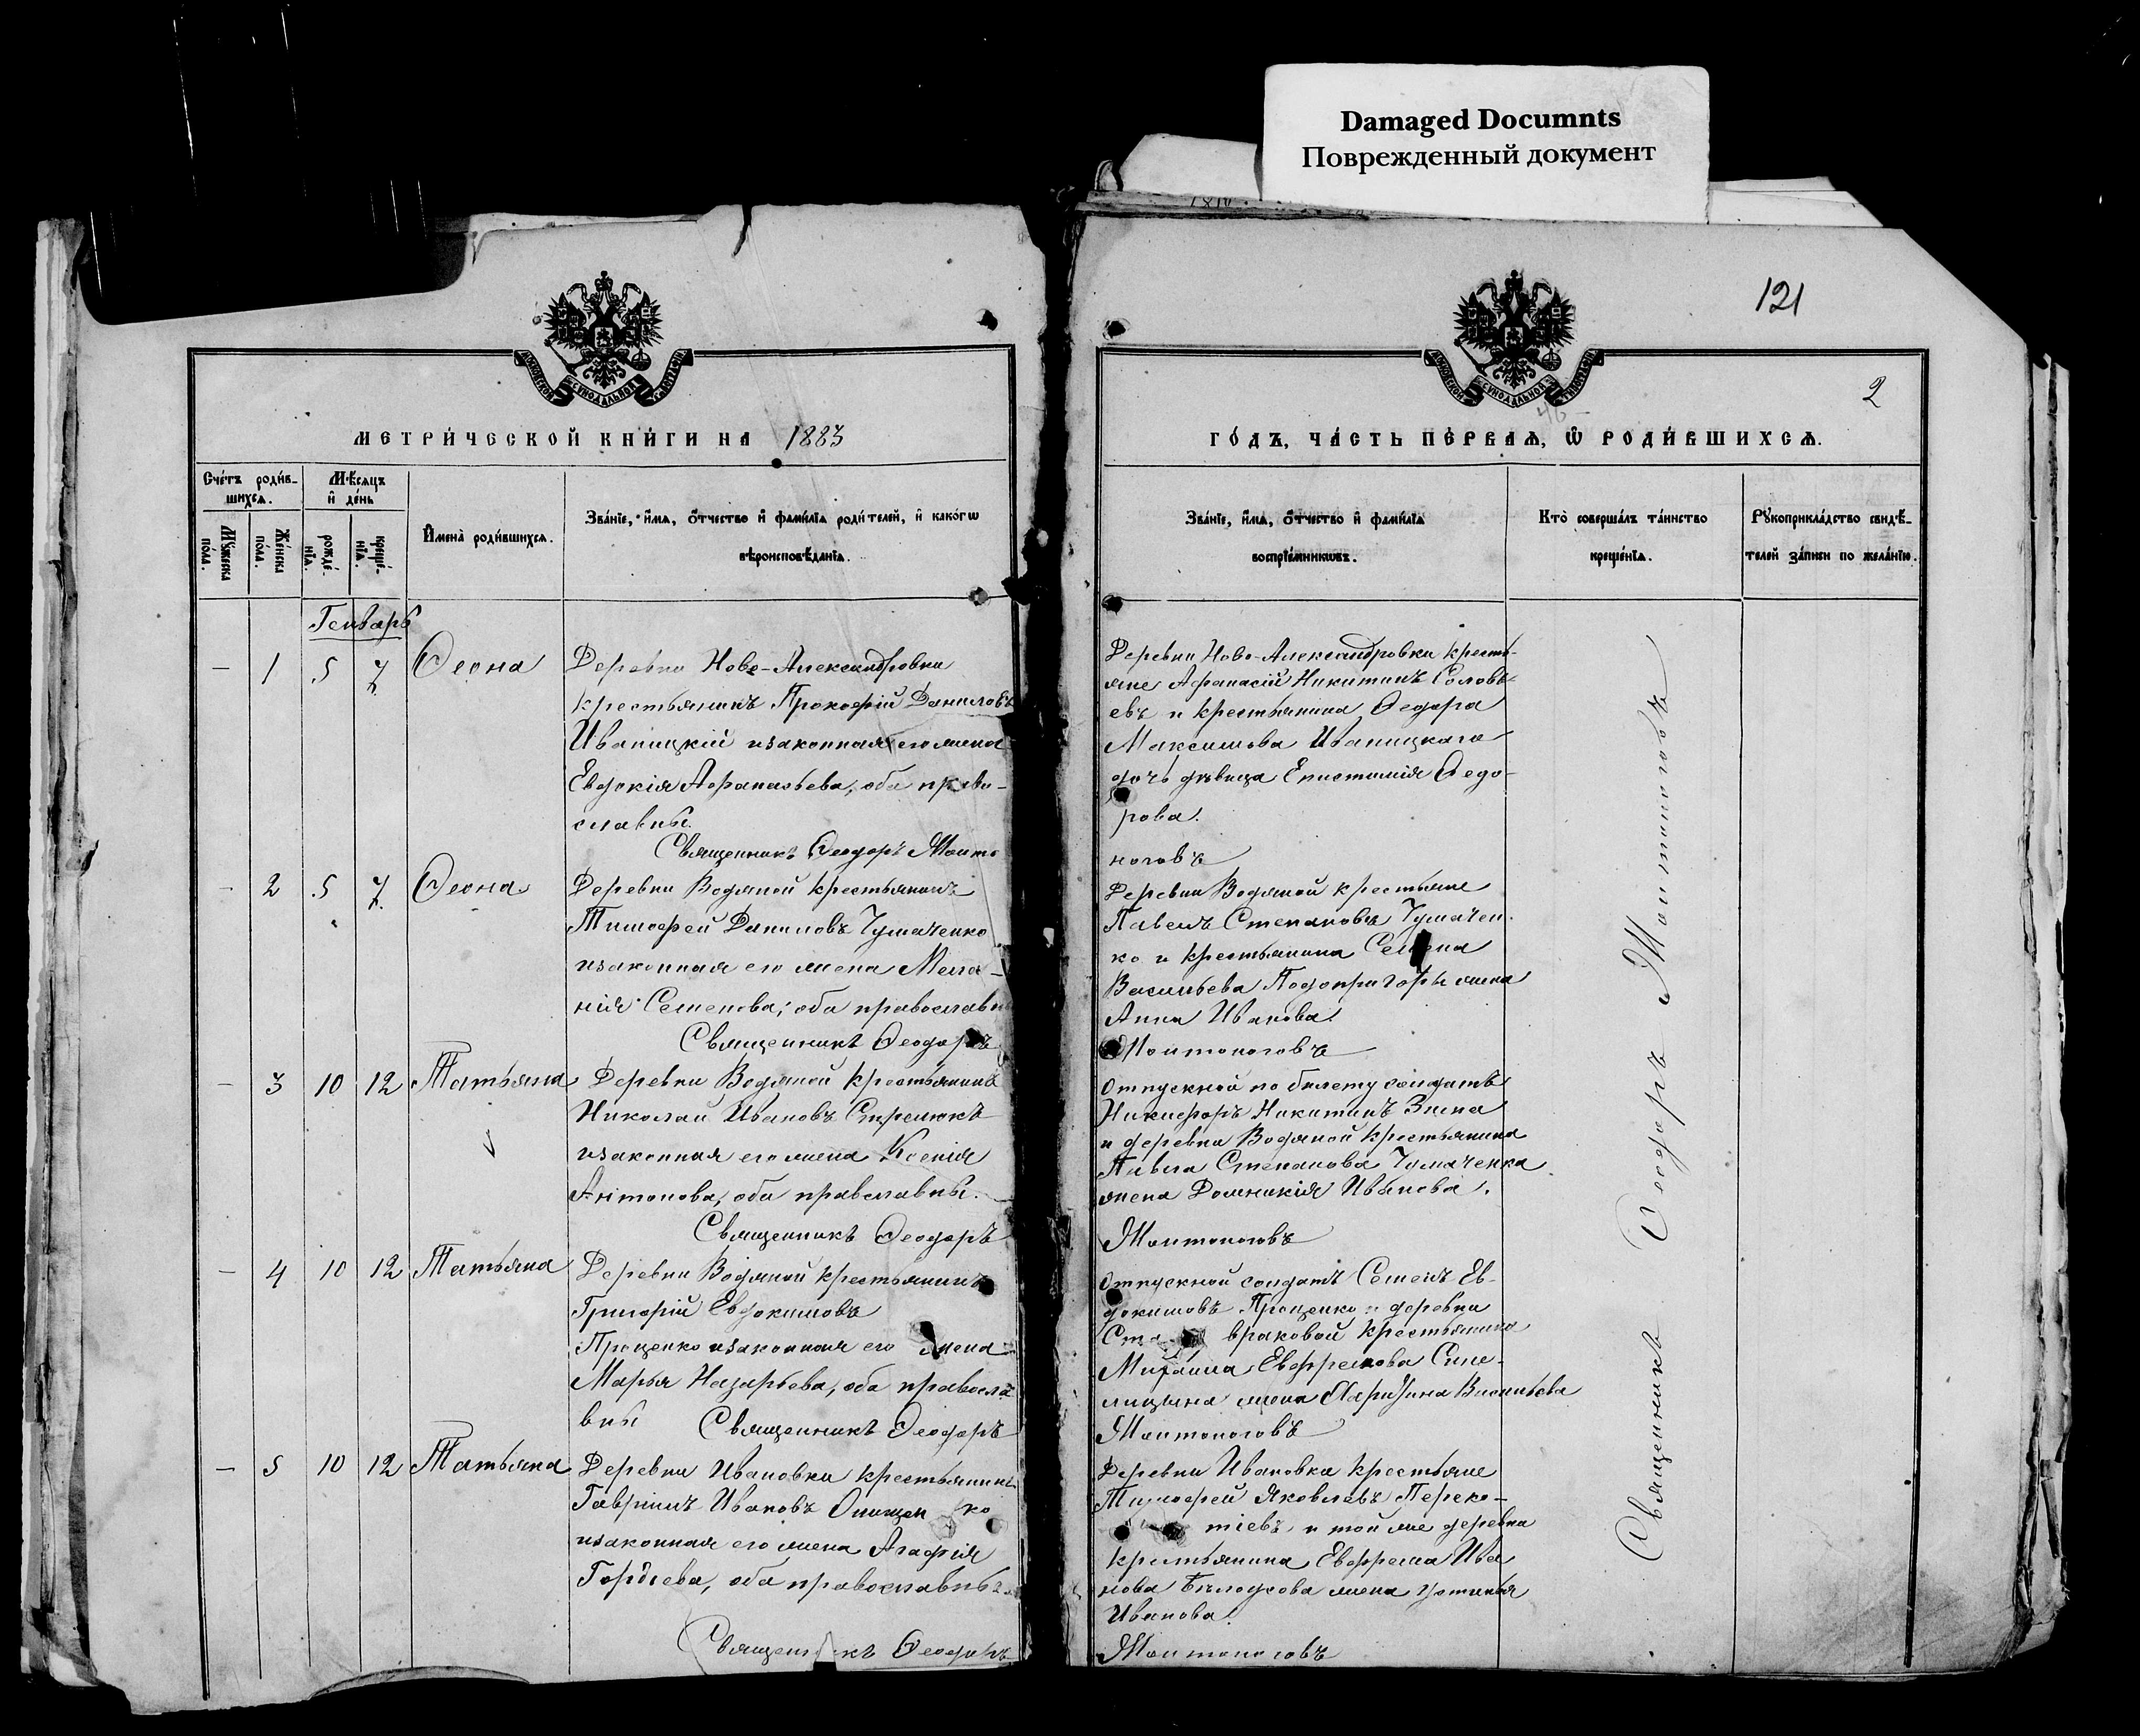 Damaged Documnts
Поврежденный документ
121
2
МЕТРИ́ЧЕСКОЙ КНИ́ГИ НА 1883
ГО́ДЪ, ЧА́СТЬ ПЕ́РВАѦ, Ѽ РОДИ́ВШИХСѦ.
Сче́тъ роди́в-
шихсѧ.
Мѣ́сяцъ
и̂ де́нь
Мꙋ́жеска по́ла.
Же́нска по́ла.
рожде́нїѧ.
креще́нїѧ.
И҆мена̀ роди́вшихсѧ.
Зва́нїе, и҆́мѧ, ѻ҆́тчество и҆ фами́лїѧ роди́телей, и҆ како́гѡ
вѣроисповѣ́данїѧ.
Зва́нїе, и҆́мѧ, ѻ҆́тчество и҆ фами́лїѧ
воспрїе́мникѡвъ.
Кто̀ соверша́лъ та́инство
креще́нїѧ.
Рꙋкоприкла́дство свидѣ́-
телей за́писи по жела́нїю.
Генварь
— 1 5 7 Ѳеона
Деревни Ново-Александровки
крестьянинъ Прокофій Даниловъ
Иваницкій изаконная его жена
Евдокія Афанасьева, оба право-
славны.
Священникъ Ѳеодоръ Молто
Деревни Ново-Александровки кресть-
яне Афанасій Никитинъ Соловь-
евъ и крестьянина Ѳеодора
Максимова Иваницкаго
дочь дѣвица Епистимія Ѳедо-
рова.
ноговъ
— 2 5 7 Ѳеона
Деревни Водяной крестьянинъ
Тимофей Даниловъ Чумаченко
изаконная его жена Мела-
нія Семенова; оба православны
Священникъ Ѳеодоръ
Деревни Водяной крестьяне
Павелъ Степановъ Чумачен-
ко и крестьянина Семена
Васильева Подопригоры жена
Анна Иванова.
Молтоноговъ
— 3 10 12 Татьяна
Деревни Водяной крестьянинъ
Николай Ивановъ Стрелюкъ
изаконная его жена Ксенія
Антонова, оба православны.
Священникъ Ѳеодоръ
отпускной по билету солдатъ
Никифоръ Никитинъ Зинна
и деревни Водяной крестьянина
Павла Степанова Чумаченка
жена Домникія Иванова.
Молтоноговъ
— 4 10 12 Татьяна
Деревни Водяной крестьянинъ
Григорій Евдокимовъ
Проценко изаконная его жена
Марья Назарьева, оба правосла
вны Священникъ Ѳеодоръ
отпускной солдатъ Семенъ Ев-
докимовъ Проценко и деревни
враковой крестьянина
Михаила Евфремова Сине-
лицына жена Васильева
Молтоноговъ
— 5 10 12 Татьяна
Деревни Ивановки крестьянинъ
Гавріилъ Ивановъ Онищен ко
изаконная его жена Агафія
Гордѣева, оба православны.
Священникъ Ѳеодоръ
Деревни Ивановки крестьяне
Тимофей Яковлевъ Переко-
тіевъ и той же деревни
крестьянина Евфрема Ива
нова Бѣлоусова жена Устинья
Иванова.
Молтоноговъ
Священникъ Ѳеодоръ Молтоноговъ